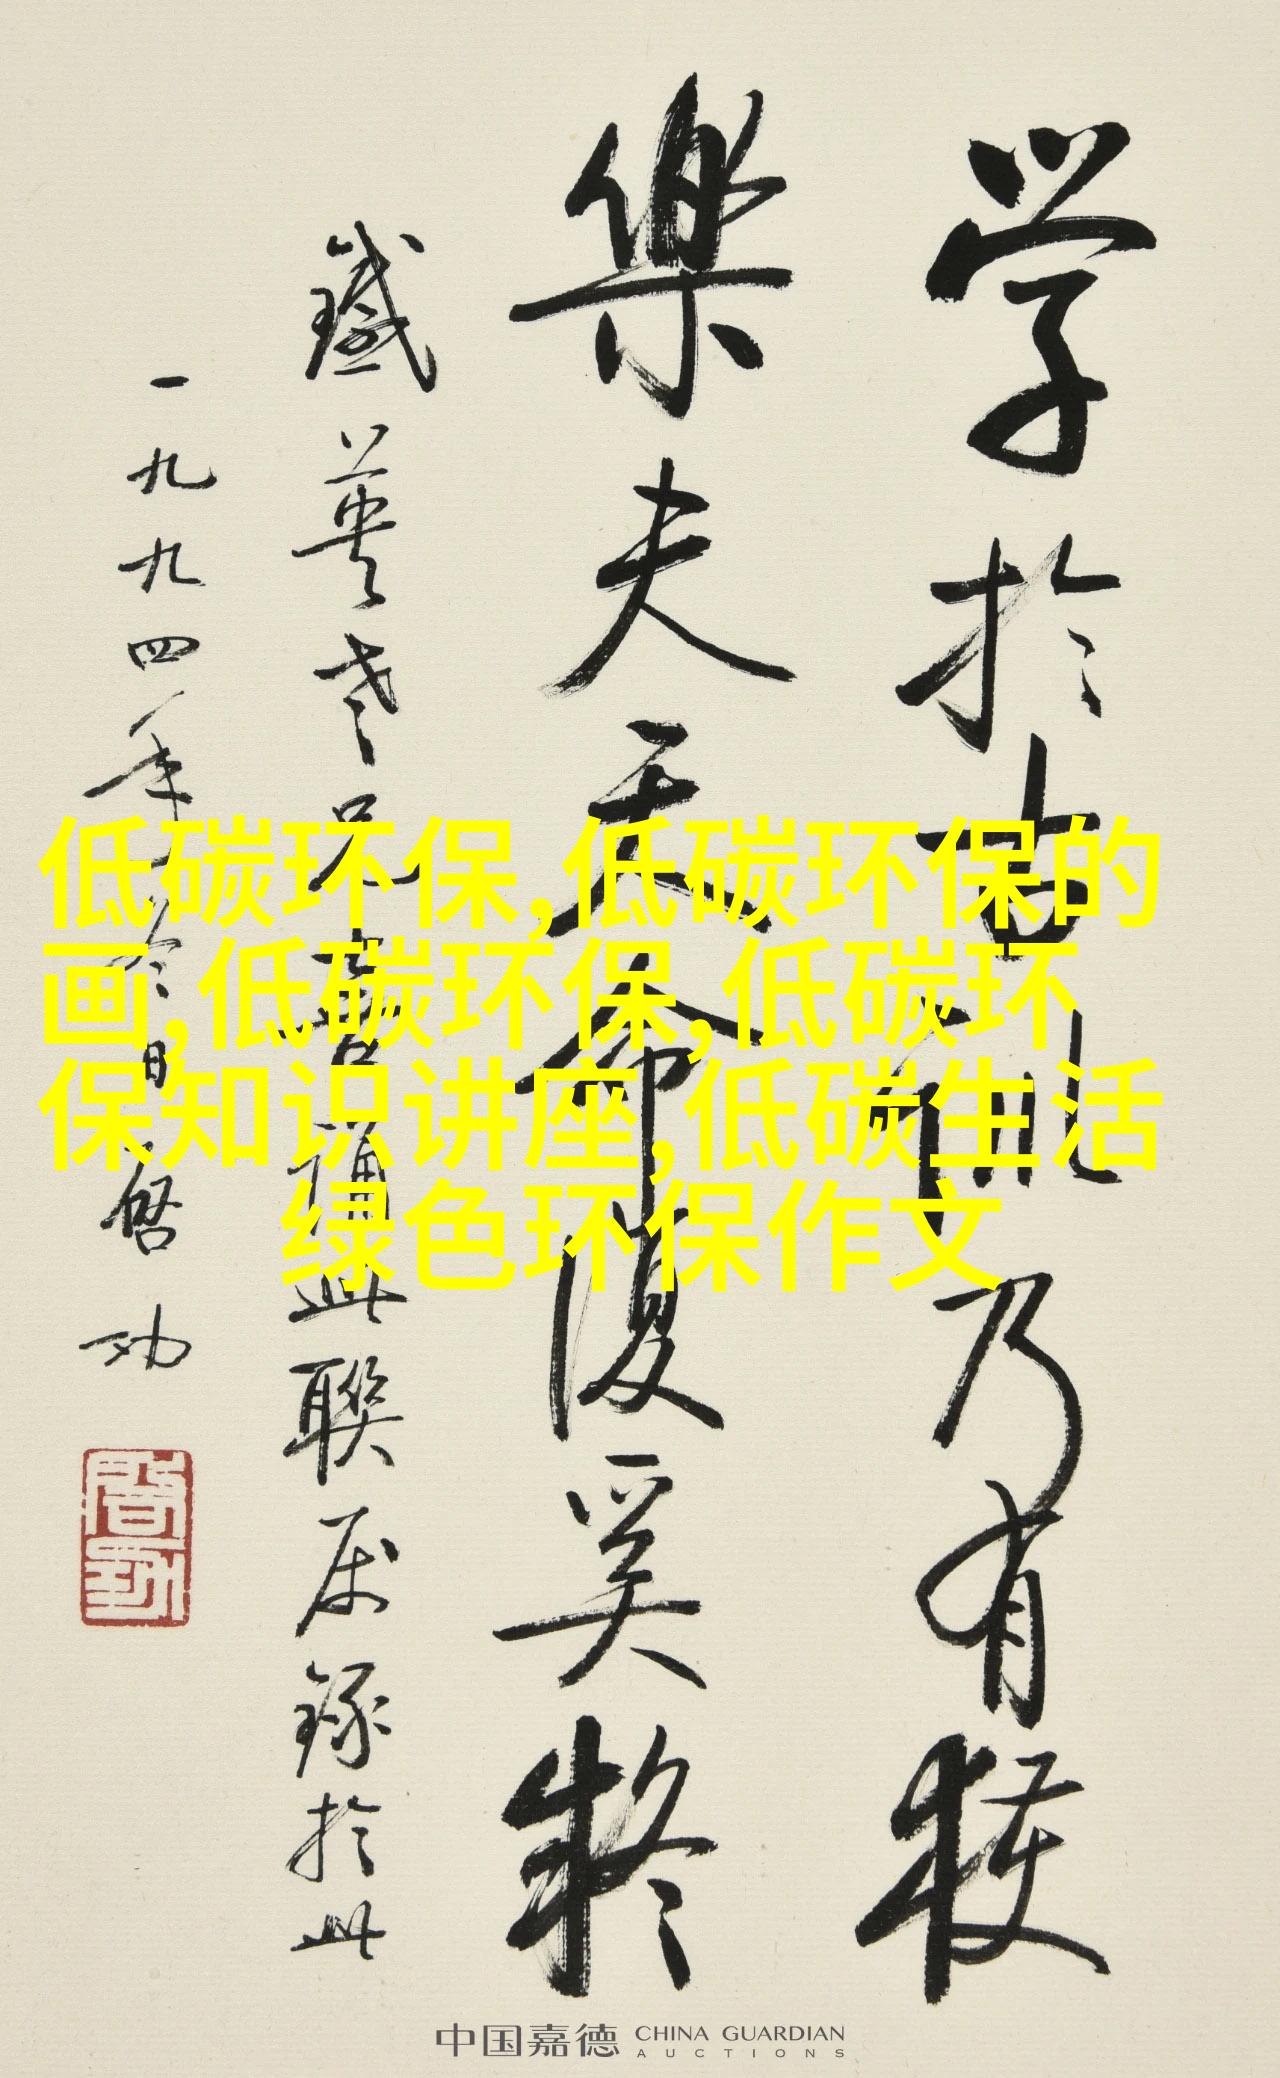 学於古訓乃有獲
樂夫天命復奚疑
鐵英老兄喜誦此聯屬錄於此
一九九四年冬日启功
低碳环保,低碳环保的
画,低碳环保,低碳环
保知识讲座,低碳生活
绿色环保作文
中国嘉德 CHINA GUARDIAN
AUCTIONS